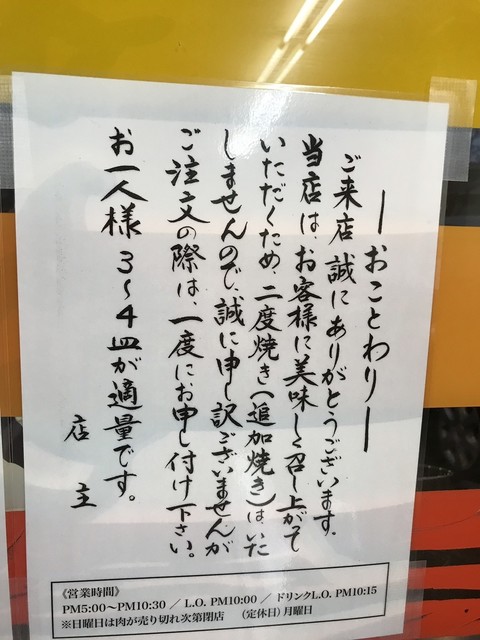 ―おことわり―
ご来店誠にありがとうございます。
当店は、お客様に美味しく召し上がって
いただくため、二度焼き(追加焼き)は、いた
しませんので、誠に申し訳ございませんが
ご注文の際は、一度にお申し付け下さい。
お一人様 3〜4皿が適量です。
店主
《営業時間》
PM5:00〜PM10:30 ／ L.O. PM10:00 ／ ドリンクL.O. PM10:15
※日曜日は肉が売り切れ次第閉店 (定休日)月曜日